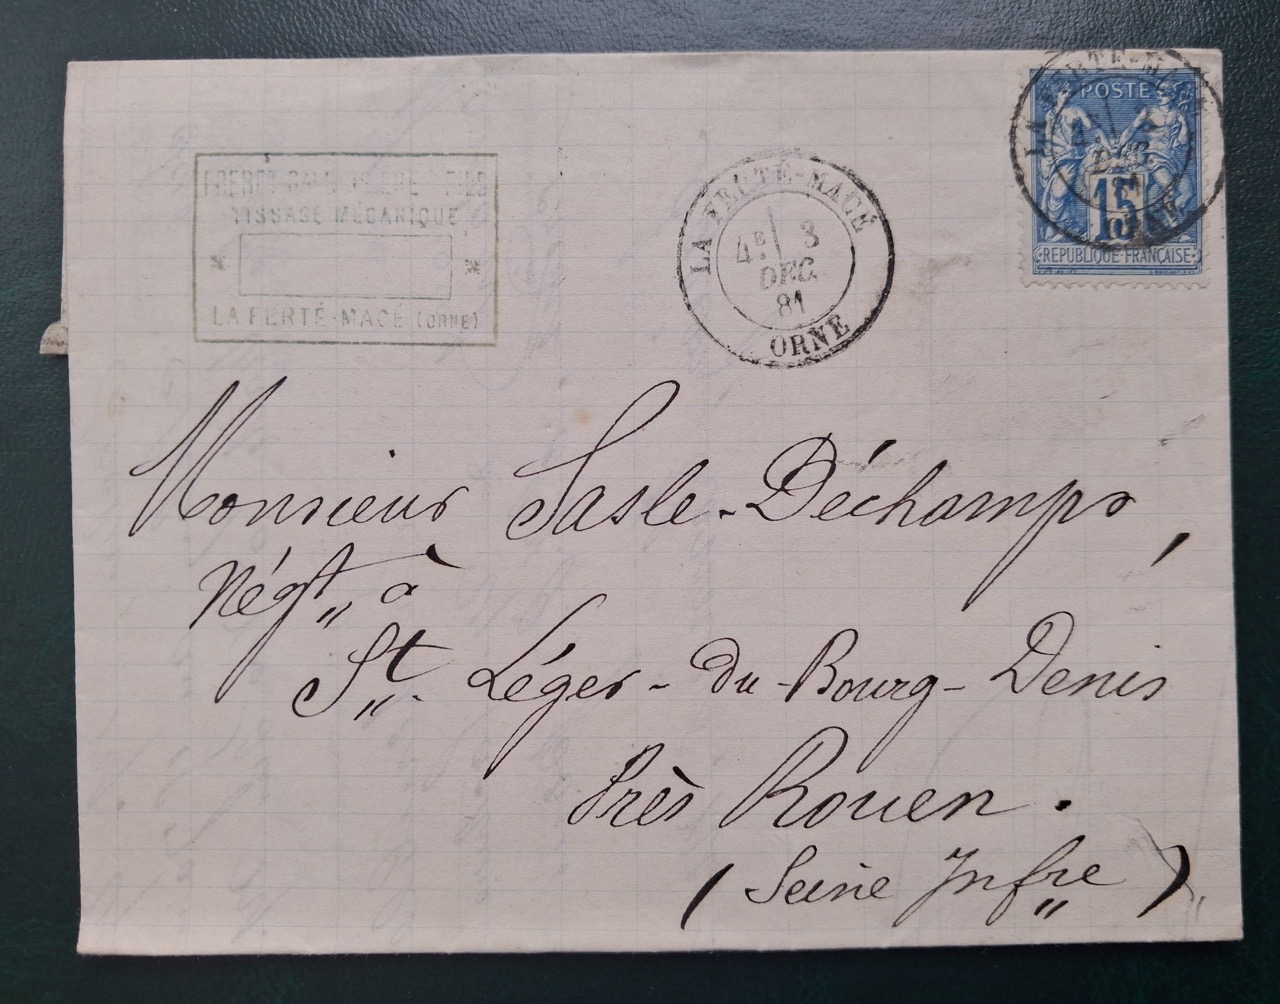 TISSAGE MÉCANIQUE
* *
LA FERTÉ-MACÉ (ORNE)
LA FERTÉ-MACÉ
4E 3
DEC.
81
ORNE
LA FERTÉ-MACÉ
DEC
81
POSTE
15
REPUBLIQUE FRANÇAISE
Monsieur Sasle-Déchamps,
Négt à
St. Léger-du-Bourg-Denis
Près Rouen.
(Seine Infre)